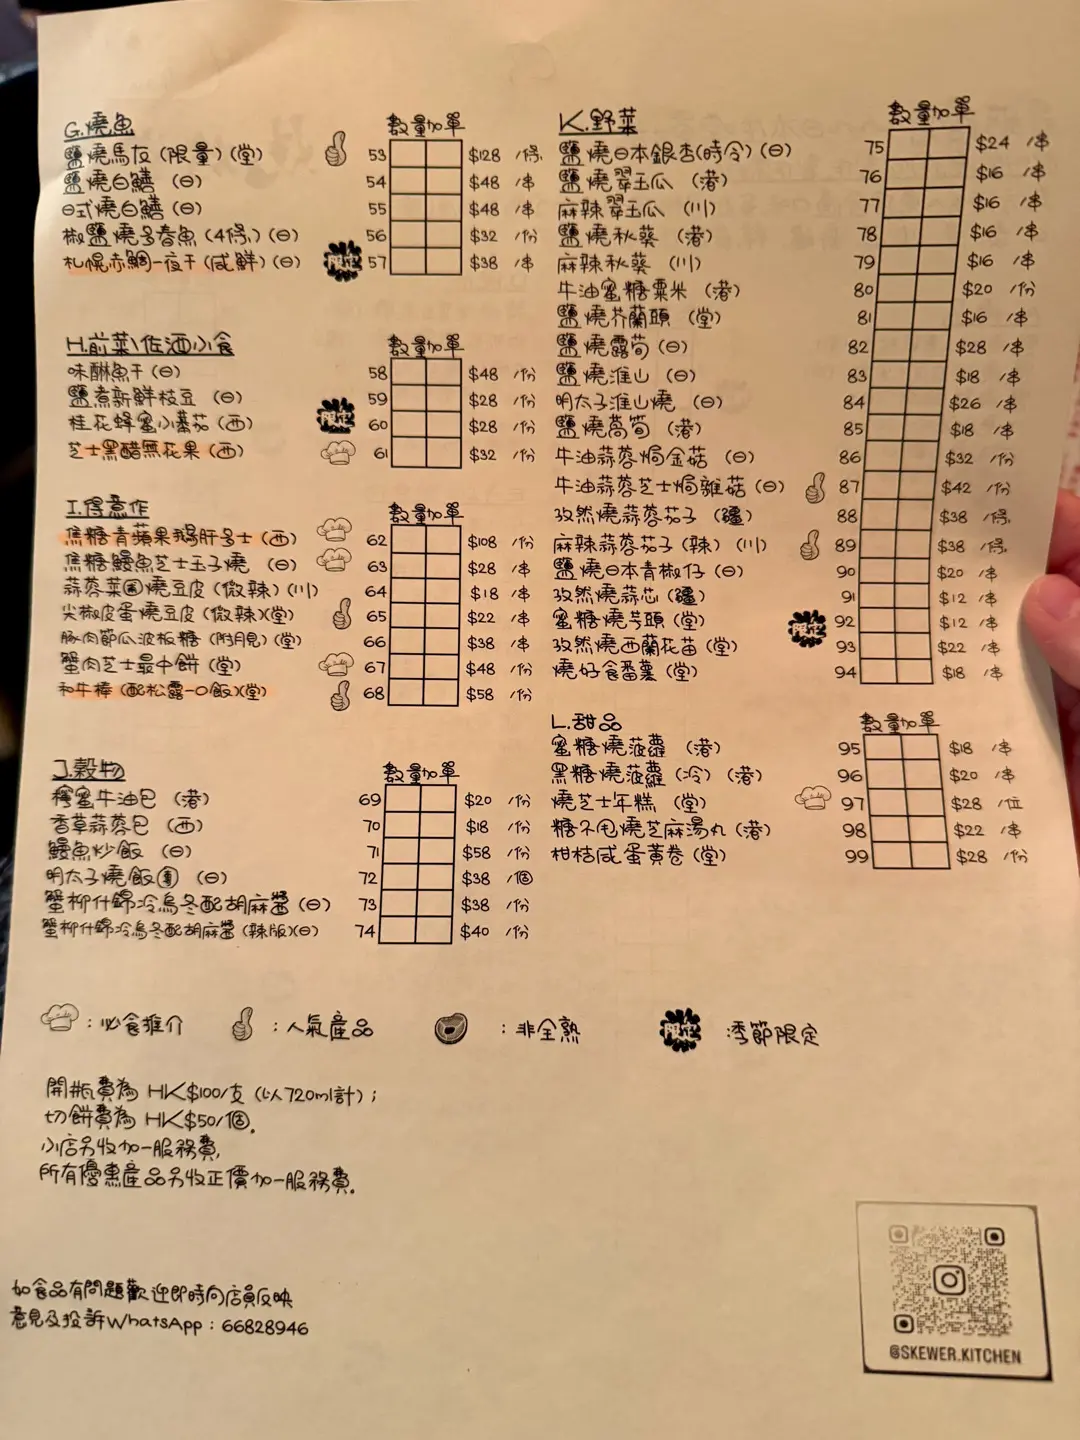 G.燒魚 數量 加單
鹽燒馬友 (限量) (堂) 53 $128 /條
鹽燒白鱔 (日) 54 $48 /串
日式燒白鱔 (日) 55 $48 /串
椒鹽燒多春魚 (4條) (日) 56 $32 /份
札幌赤鯛一夜干 (咸鮮) (日) 限定 57 $38 /串
H.前菜\佐酒小食 數量 加單
味醂魚干 (日) 58 $48 /份
鹽煮新鮮枝豆 (日) 59 $28 /份
桂花蜂蜜小番茄 (西) 限定 60 $28 /份
芝士黑醋無花果 (西) 61 $32 /份
I.得意作 數量 加單
焦糖青蘋果鵝肝多士 (西) 62 $108 /份
焦糖鰻魚芝士玉子燒 (日) 63 $28 /串
蒜蓉菜圃燒豆皮 (微辣) (川) 64 $18 /串
尖椒皮蛋燒豆皮 (微辣)(堂) 65 $22 /串
豚肉節瓜波板糖 (附月見) (堂) 66 $38 /串
蟹肉芝士最中餅 (堂) 67 $48 /份
和牛棒 (配松露一口飯)(堂) 68 $58 /份
J.穀物 數量 加單
檸蜜牛油包 (港) 69 $20 /份
香草蒜蓉包 (西) 70 $18 /份
鰻魚炒飯 (日) 71 $58 /份
明太子燒飯團 (日) 72 $38 /個
蟹柳什錦冷烏冬配胡麻醬 (日) 73 $38 /份
蟹柳什錦冷烏冬配胡麻醬 (辣版)(日) 74 $40 /份
K.野菜 數量 加單
鹽燒日本銀杏(時令) (日) 75 $24 /串
鹽燒翠玉瓜 (港) 76 $16 /串
麻辣翠玉瓜 (川) 77 $16 /串
鹽燒秋葵 (港) 78 $16 /串
麻辣秋葵 (川) 79 $16 /串
牛油蜜糖粟米 (港) 80 $20 /份
鹽燒芥蘭頭 (堂) 81 $16 /串
鹽燒露荀 (日) 82 $28 /串
鹽燒淮山 (日) 83 $18 /串
明太子淮山燒 (日) 84 $26 /串
鹽燒萵筍 (港) 85 $18 /串
牛油蒜蓉焗金菇 (日) 86 $32 /份
牛油蒜蓉芝士焗雜菇 (日) 87 $42 /份
孜然燒蒜蓉茄子 (疆) 88 $38 /條
麻辣蒜蓉茄子 (辣) (川) 89 $38 /條
鹽燒日本青椒仔 (日) 90 $20 /串
孜然燒蒜芯 (疆) 91 $12 /串
蜜糖燒芋頭 (堂) 限定 92 $12 /串
孜然燒西蘭花苗 (堂) 93 $22 /串
燒好食番薯 (堂) 94 $18 /串
L.甜品 數量 加單
蜜糖燒菠蘿 (港) 95 $18 /串
黑糖燒菠蘿 (冷) (港) 96 $20 /串
燒芝士年糕 (堂) 97 $28 /位
糖不甩燒芝麻湯丸 (港) 98 $22 /串
柑桔咸蛋黃卷 (堂) 99 $28 /份
：必食推介 ：人氣產品 ：非全熟 限定 季節限定
開瓶費為 HK$100/支 (以720ml計)；
切餅費為 HK$50/個。
小店另收加一服務費,
所有優惠產品另收正價加一服務費。
如食品有問題歡迎即時向店員反映
意見及投訴WhatsApp：66828946
@SKEWER.KITCHEN